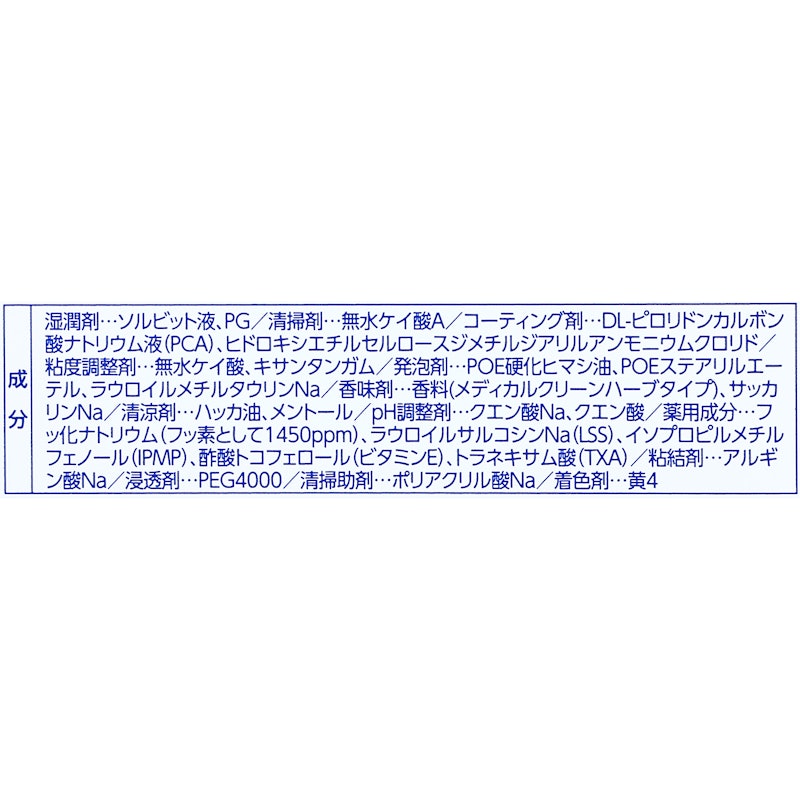 成分
湿潤剤…ソルビット液、PG／清掃剤…無水ケイ酸A／コーティング剤…DL-ピロリドンカルボン
酸ナトリウム液(PCA)、ヒドロキシエチルセルロースジメチルジアリルアンモニウムクロリド／
粘度調整剤…無水ケイ酸、キサンタンガム／発泡剤…POE硬化ヒマシ油、POEステアリルエー
テル、ラウロイルメチルタウリンNa／香味剤…香料(メディカルクリーンハーブタイプ)、サッカ
リンNa／清涼剤…ハッカ油、メントール／pH調整剤…クエン酸Na、クエン酸／薬用成分…フ
ッ化ナトリウム(フッ素として1450ppm)、ラウロイルサルコシンNa(LSS)、イソプロピルメチル
フェノール(IPMP)、酢酸トコフェロール(ビタミンE)、トラネキサム酸(TXA)／粘結剤…アルギ
ン酸Na／浸透剤…PEG4000／清掃助剤…ポリアクリル酸Na／着色剤…黄4